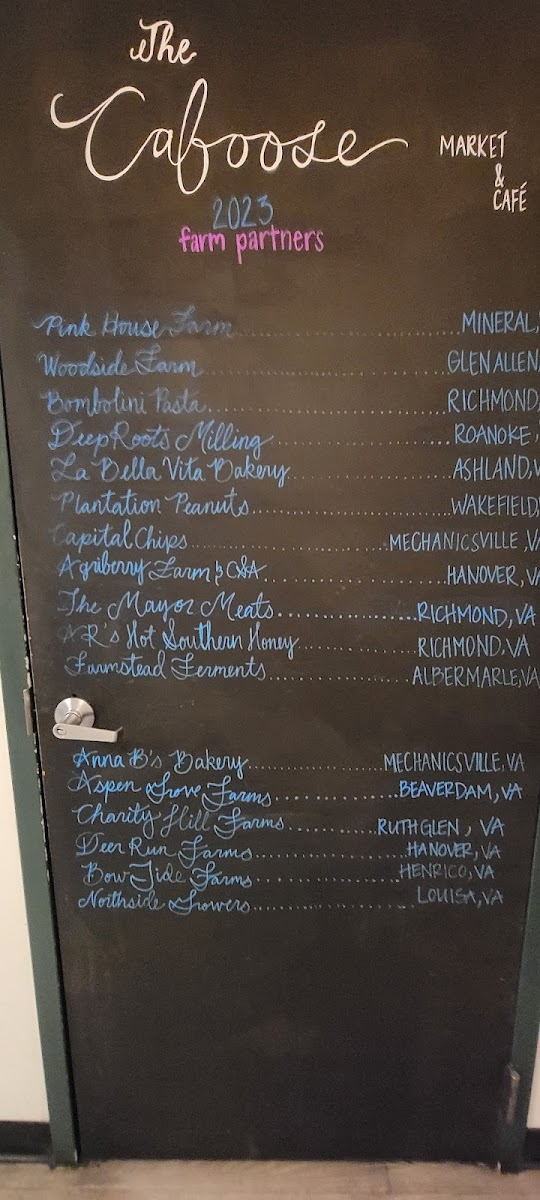 The
Caboose
MARKET
&
CAFÉ
2023
farm partners
Pink House Farm MINERAL,
Woodside Farm GLEN ALLEN,
Bombolini Pasta RICHMOND,
Deep Roots Milling ROANOKE,
La Bella Vita Bakery ASHLAND, V
Plantation Peanuts WAKEFIELD,
Capital Chips MECHANICSVILLE, VA
Agriberry Farm & CSA HANOVER, VA
The Mayor Meats RICHMOND, VA
AR's Hot Southern Honey RICHMOND, VA
Farmstead Ferments ALBERMARLE, VA
Anna B's Bakery MECHANICSVILLE, VA
Aspen Grove Farms BEAVERDAM, VA
Charity Hill Farms RUTHGLEN, VA
Deer Run Farms HANOVER, VA
Bow Tide Farms HENRICO, VA
Northside Growers LOUISA, VA